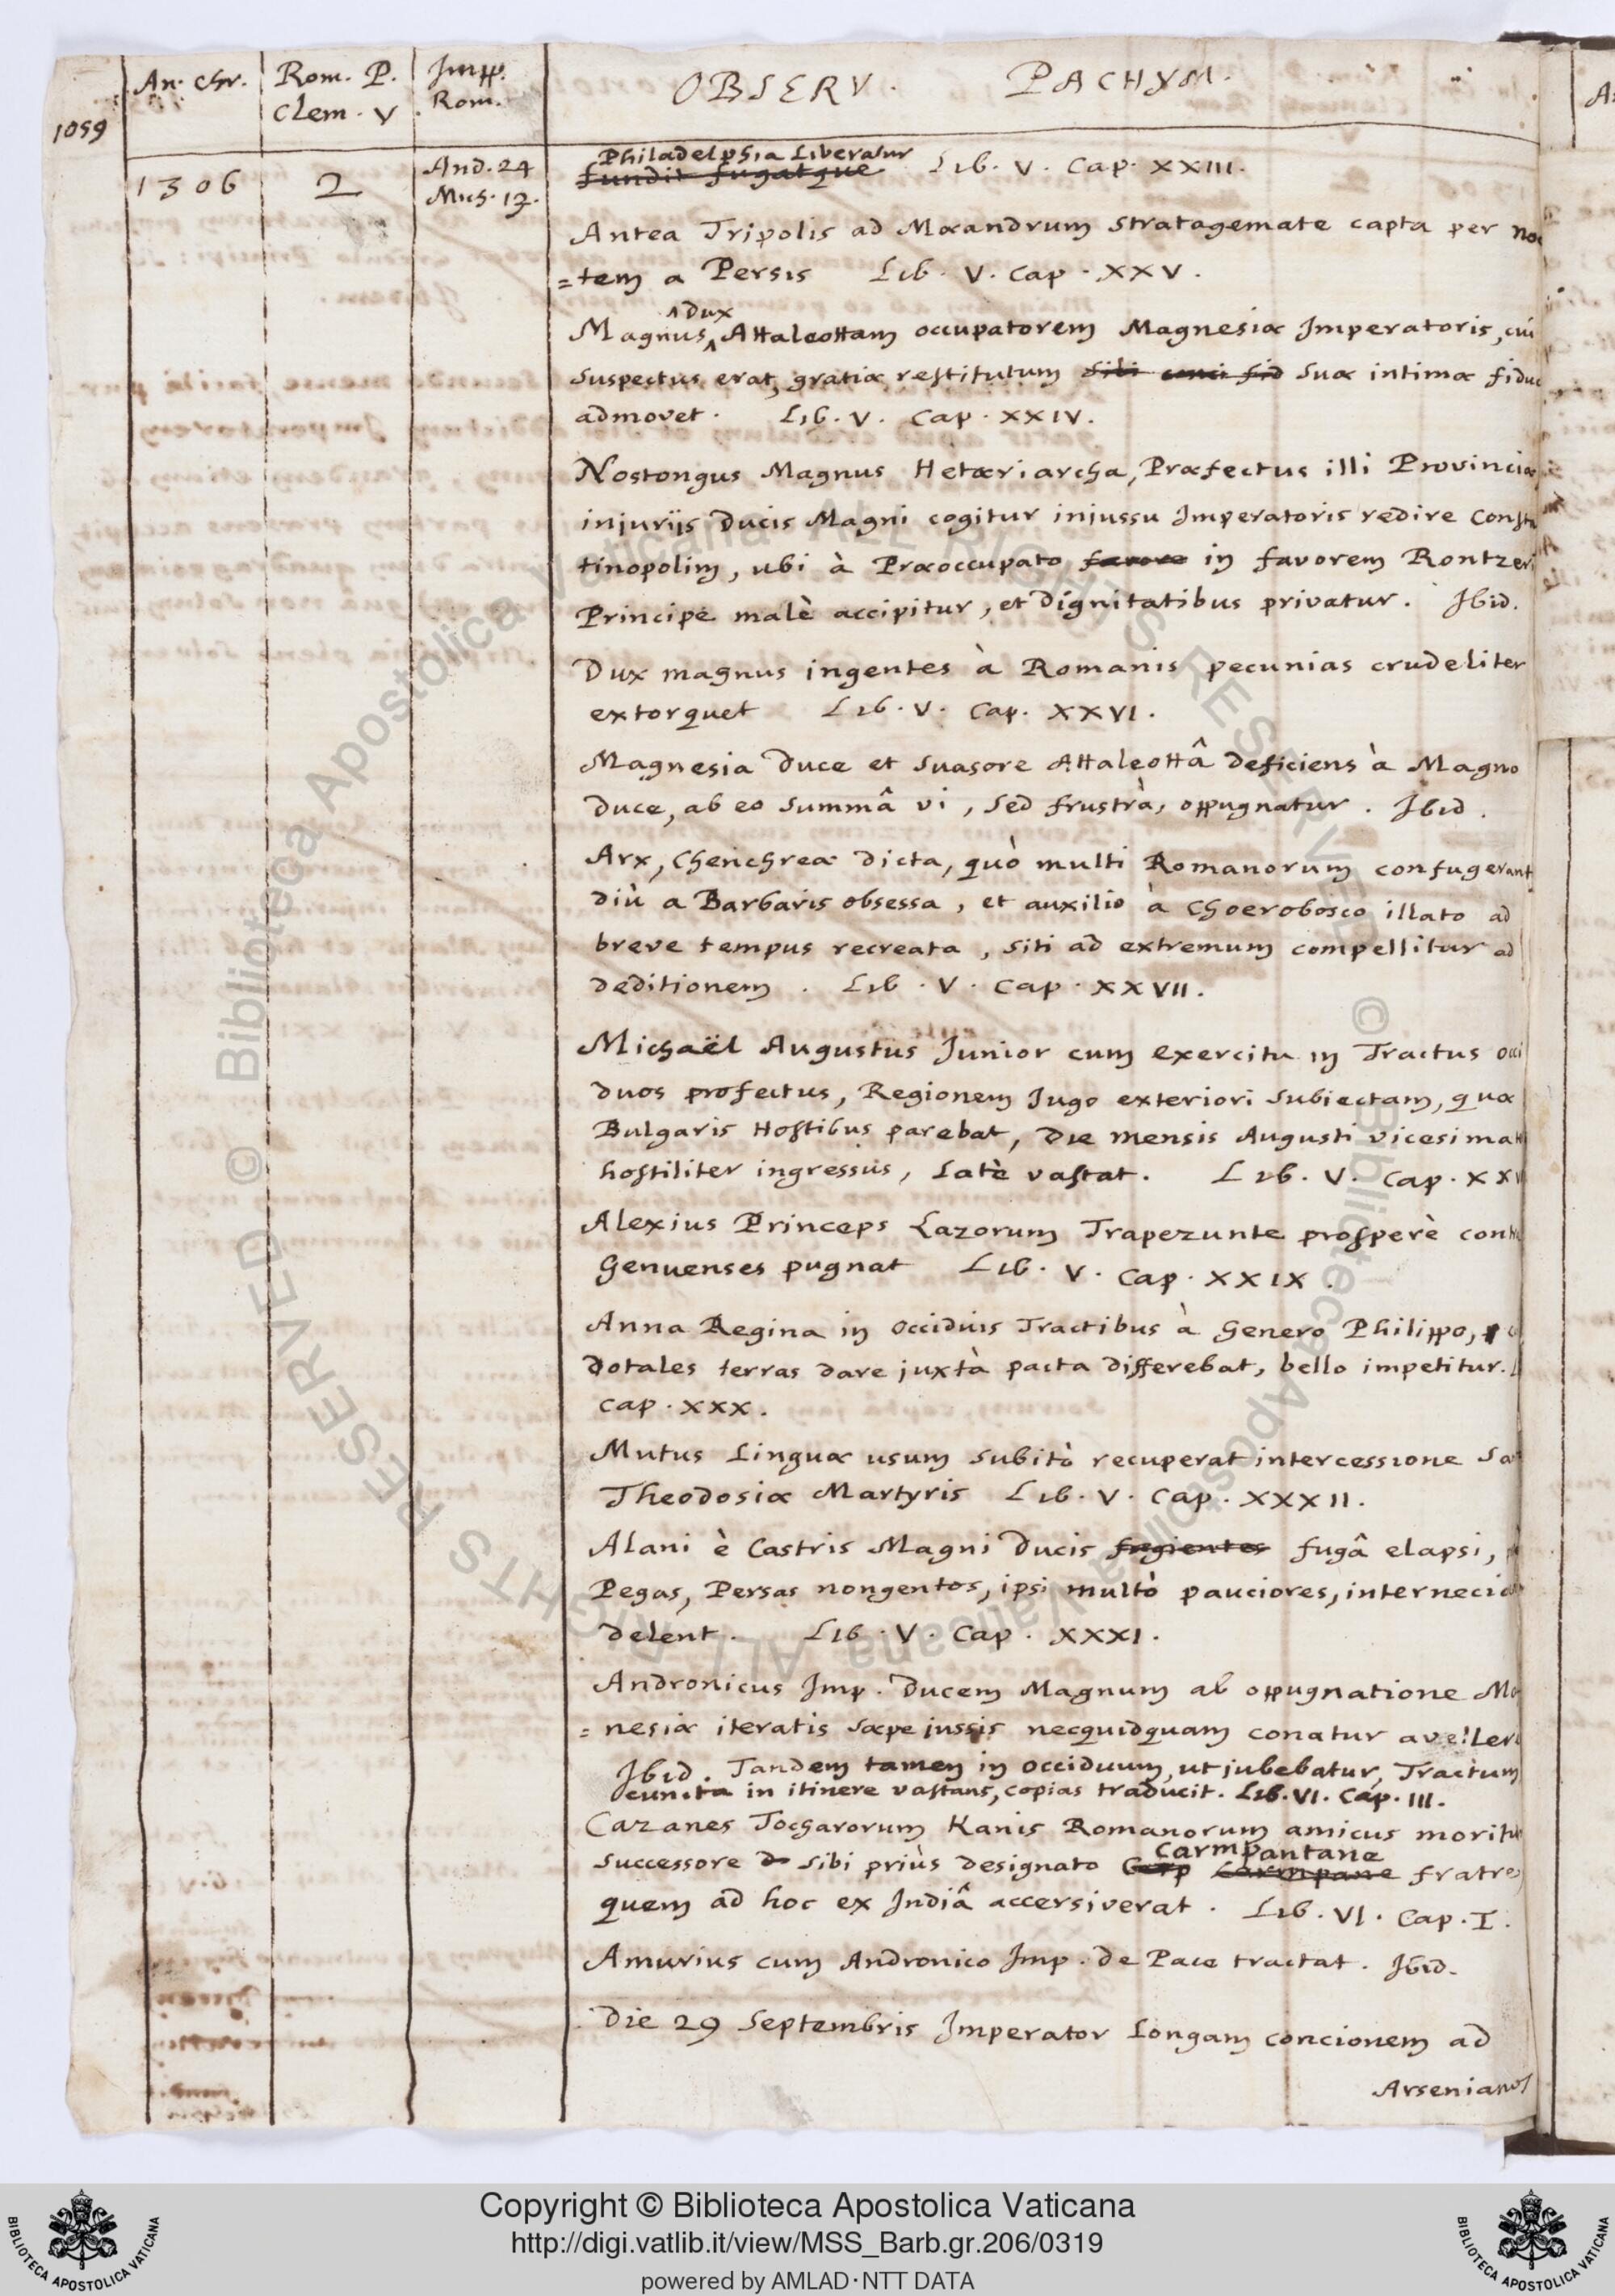 1059
An. Chr. Rom. P. Clem. V Impp. Rom. OBSERV. PACHYM.
1306 2 And. 24 Mich. 12.
Philadelphia Liberatur
fundit fugatque Lib. V. Cap. XXIII.
Antea Tripolis ad Mæandrum stratagemate capta per noc
=tem a Persis Lib. V. Cap. XXV.
Dux
Magnus Attaleottam occupatorem Magnesiæ Imperatoris, cui
suspectus erat, gratiæ restitutum sibi suæ intimæ fiduc
admovet. Lib. V. Cap. XXIV.
Nostongus Magnus Hetæriarcha, Præfectus illi Provinciæ,
injurijs Ducis Magni cogitur injussu Imperatoris redire Consta
tinopolim, ubi à Præoccupato favore in favorem Rontzeri
Principe malè accipitur, et Dignitatibus privatur. Ibid.
Dux magnus ingentes à Romanis pecunias crudeliter
extorquet Lib. V. Cap. XXVI.
Magnesia Duce et suasore Attaleottâ deficiens à Magno
Duce, ab eo summâ vi, sed frustrà, oppugnatur. Ibid.
Arx, Chenchreæ dicta, quò multi Romanorum confugerant
diù a Barbaris obsessa, et auxilio à Choerobosco illato ad
breve tempus recreata, siti ad extremum compellitur ad
deditionem. Lib. V. Cap. XXVII.
Michaël Augustus Junior cum exercitu in Tractus occi
duos profectus, Regionem Jugo exteriori subiectam, quæ
Bulgaris Hostibus parebat, die mensis Augusti vicesima
hostiliter ingressus, latè vastat. Lib. V. Cap. XXV
Alexius Princeps Lazorum Trapezunte prosperè cont
Genuenses pugnat Lib. V. Cap. XXIX.
Anna Regina in occiduis Tractibus à Genero Philippo,
dotales terras dare juxtà pacta differebat, bello impetitur. L
Cap. XXX.
Mutus Linguæ usum subitò recuperat intercessione Sa
Theodosiæ Martyris Lib. V. Cap. XXXII.
Alani è Castris Magni Ducis fugientes fugâ elapsi,
Pegas, Persas nongentos, ipsi multò pauciores, internecio
delent. Lib. V. Cap. XXXI.
Andronicus Imp. Ducem Magnum ab oppugnatione Ma
=nesiæ iteratis sæpe jussis necquidquam conatur avellere
Ibid. Tandem tamen in occiduum, ut jubebatur, Tractum
cuncta in itinere vastans, copias traducit. Lib. VI. Cap. III.
Cazanes Tocharorum Kanis Romanorum amicus moritu
Carmpantane
successore sibi priùs designato Carmpane fratre,
quem ad hoc ex Indiâ accersiverat. Lib. VI. Cap. I.
Amurius cum Andronico Imp. de Pace tractat. Ibid.
Die 29 Septembris Imperator Longam concionem ad
Arsenianos
© Biblioteca Apostolica Vaticana ALL RIGHTS RESERVED © Biblioteca Apostolica Vaticana ALL RIGHTS RESERVED
BIBLIOTECA APOSTOLICA VATICANA
Copyright © Biblioteca Apostolica Vaticana
http://digi.vatlib.it/view/MSS_Barb.gr.206/0319
powered by AMLAD·NTT DATA
BIBLIOTECA APOSTOLICA VATICANA